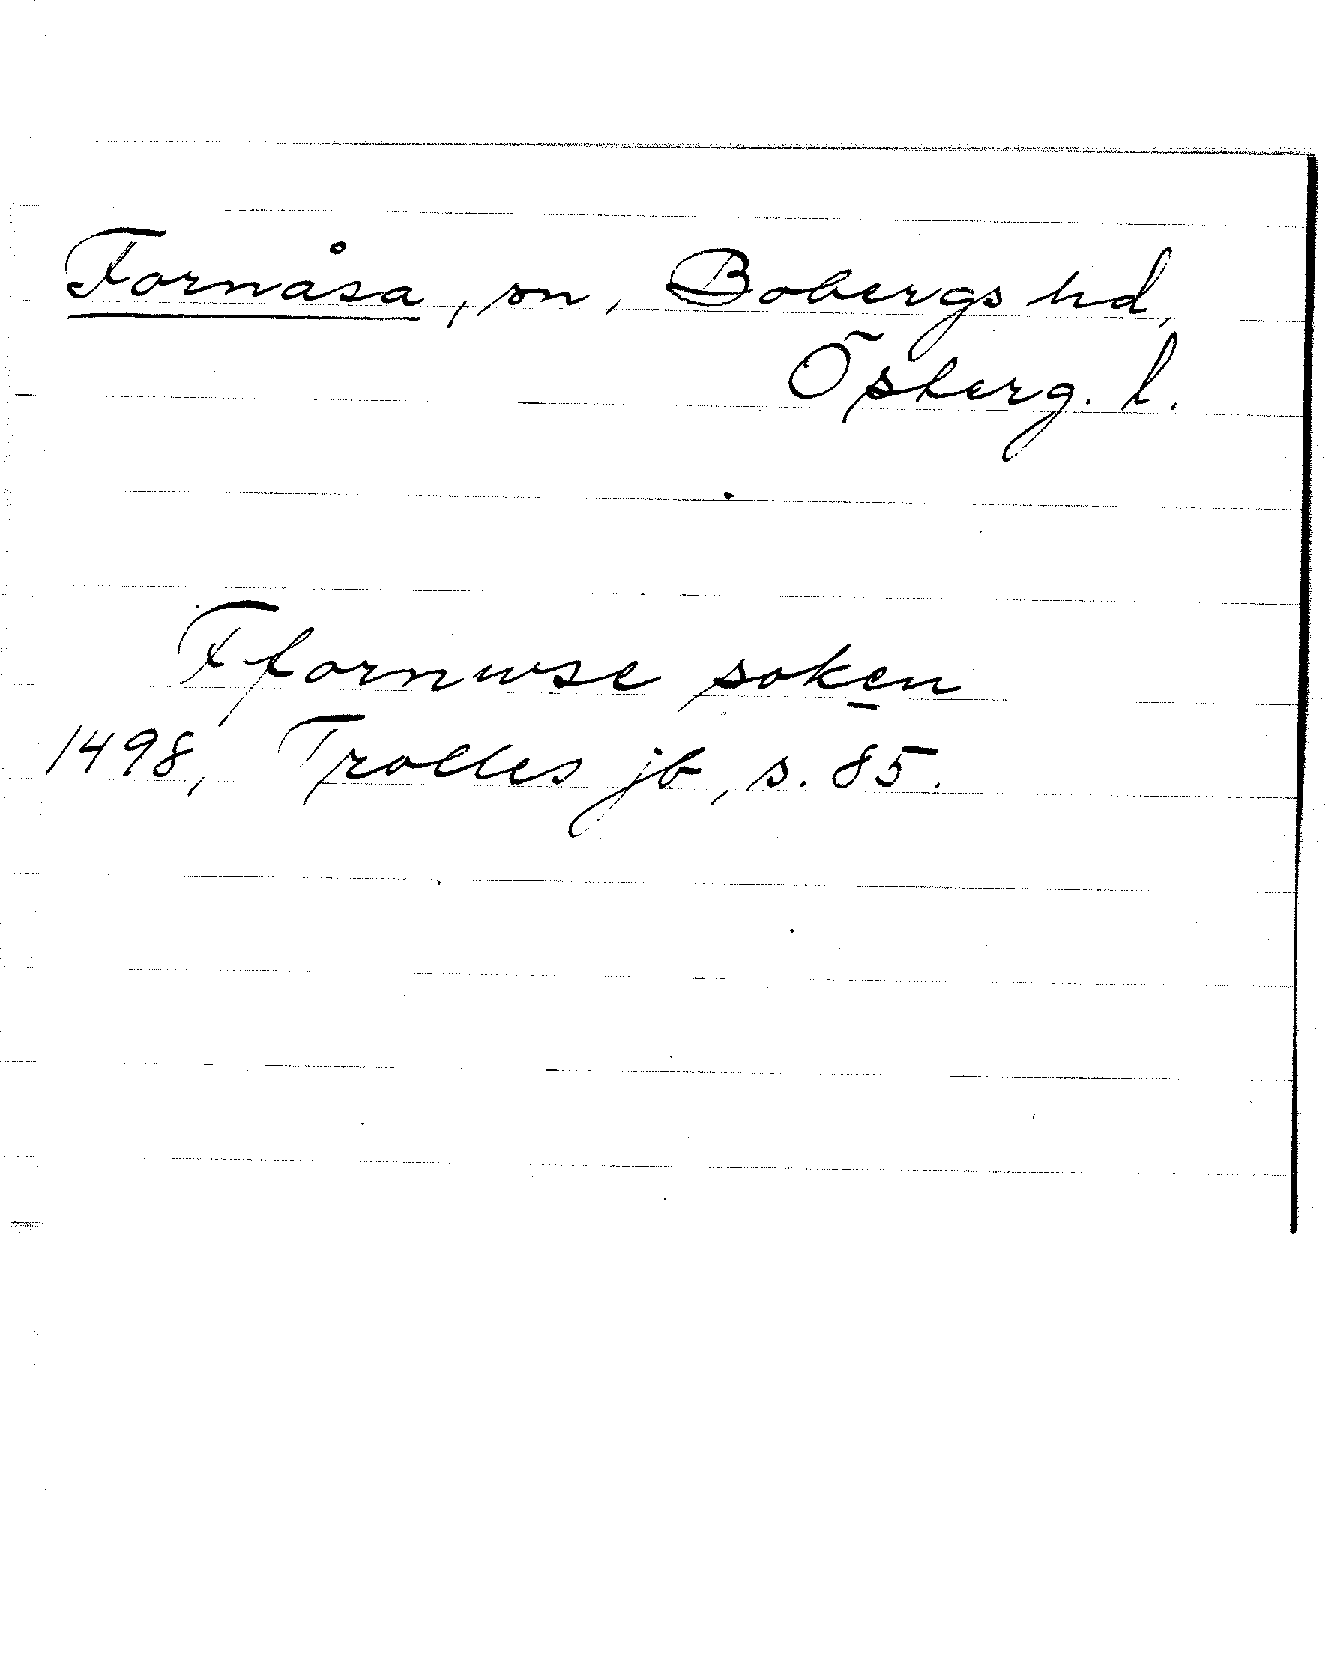 Fornåsa, sn, Bobergs hd,
Österg. l.
Ffornwse soken
1498, Trolles jb, s. 85.